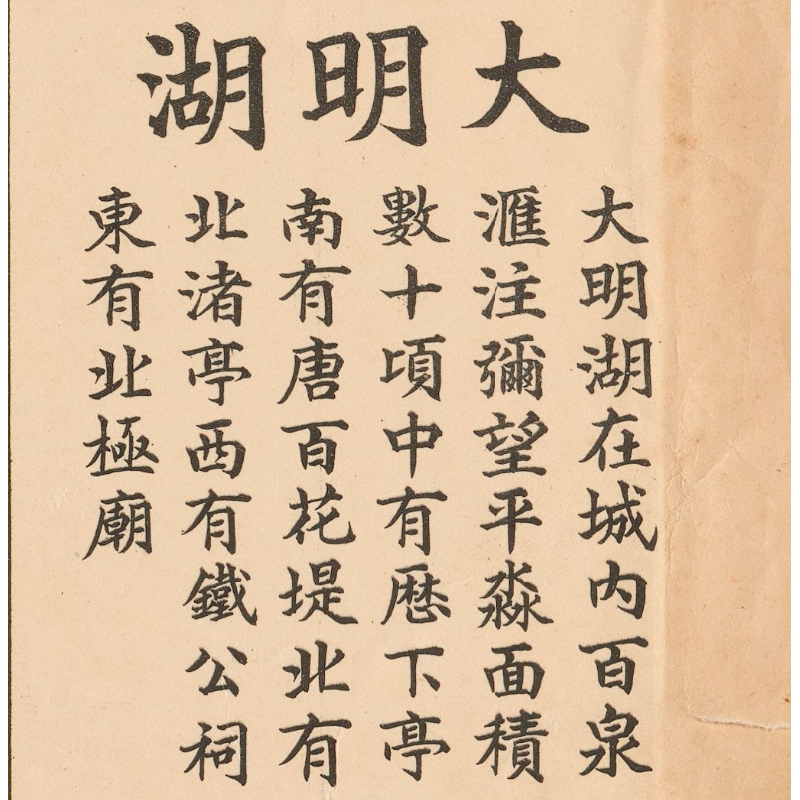 大明湖
大明湖在城内百泉
滙注彌望平淼面積
數十頃中有歷下亭
南有唐百花堤北有
北渚亭西有鐵公祠
東有北極廟